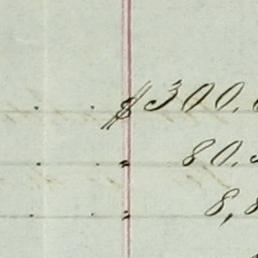 . . $300.
. . " 80.
. . " 8,8